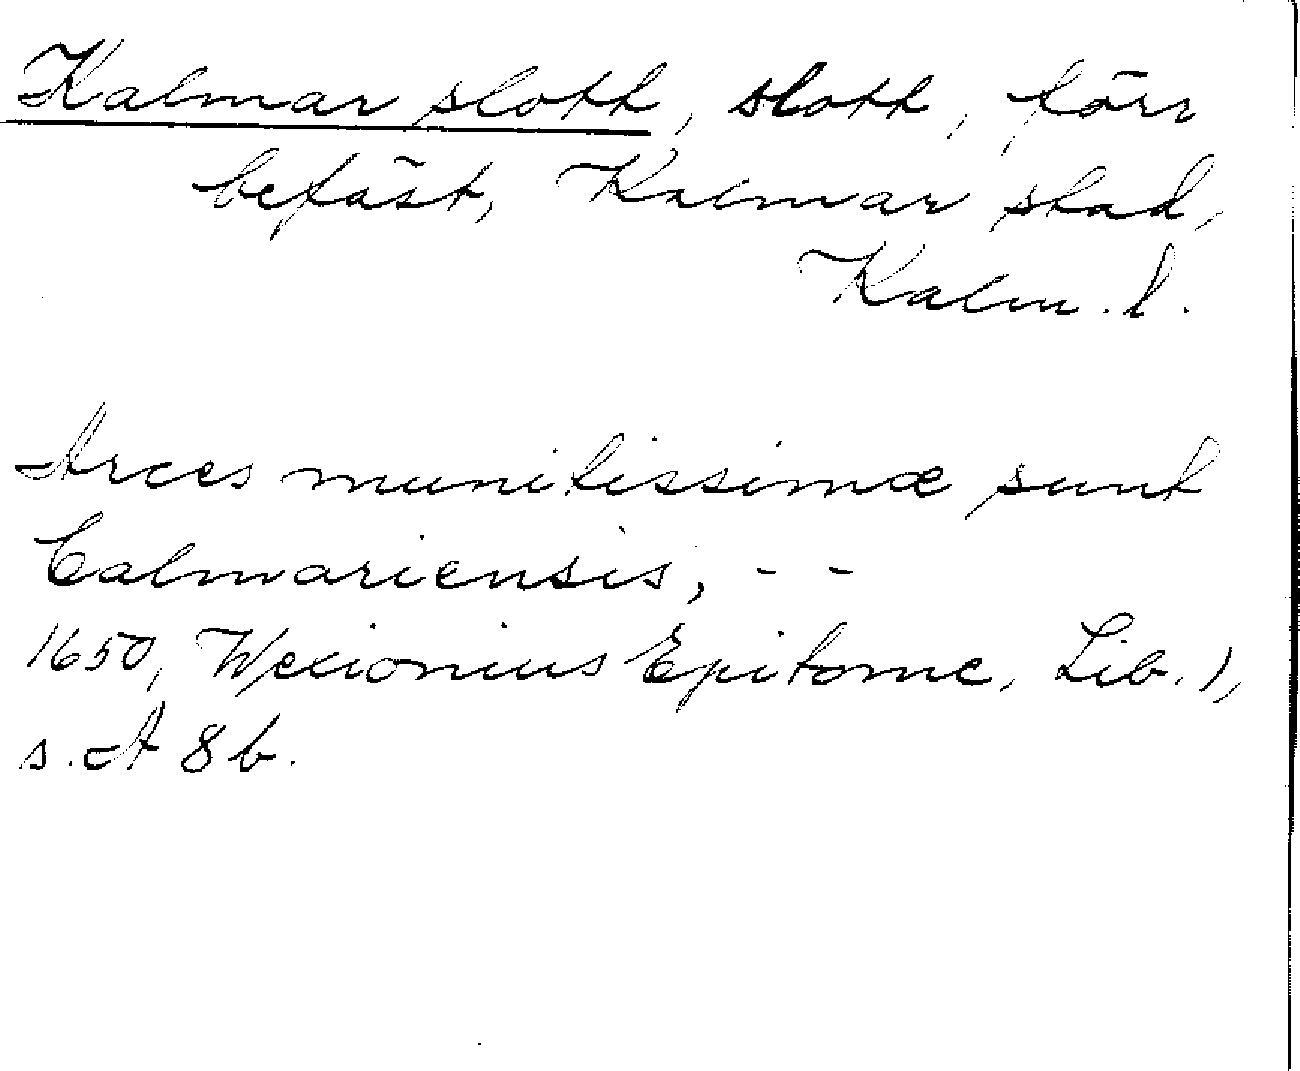 Kalmar slott, slott, förr
befäst, Kalmar stad,
Kalm. l.
Arces munitissimæ sunt
Calmariensis, - -
1650, Wexionius Epitome, Lib. 1,
s. A 8 b.